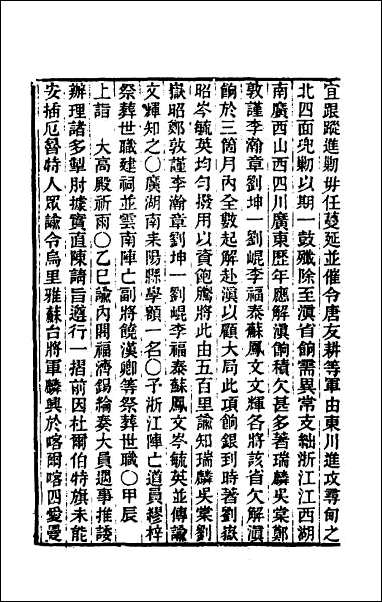 宜跟蹤進剿毋任蔓延並催令唐友耕等軍由東川進攻尋甸之
北四面兜剿以期一鼓殲除至滇省餉需異常支絀浙江江西湖
南廣西山西四川廣東歷年應解滇餉積欠甚多著瑞麟吳棠鄭
敦謹李瀚章劉坤一劉崐李福泰蘇鳳文文輝各將該省欠解滇
餉於三箇月內全數起解赴滇以顧大局此項餉銀到時著劉嶽
昭岑毓英均勻撥用以資飽騰將此由五百里諭知瑞麟吳棠劉
嶽昭鄭敦謹李瀚章劉坤一劉崐李福泰蘇鳳文岑毓英並傳諭
文輝知之〇廣湖南耒陽縣學額一名〇予浙江陣亡道員繆梓
祭葬世職建祠並雲南陣亡副將饒漢卿等祭葬世職〇甲辰
上詣　大高殿祈雨〇乙巳諭內閣福濟錫綸奏大員遇事推諉
辦理諸多掣肘據實直陳請旨遵行一摺前因杜爾伯特旗未能
安插厄魯特人眾諭令烏里雅蘇台將軍麟興於喀爾喀四愛曼